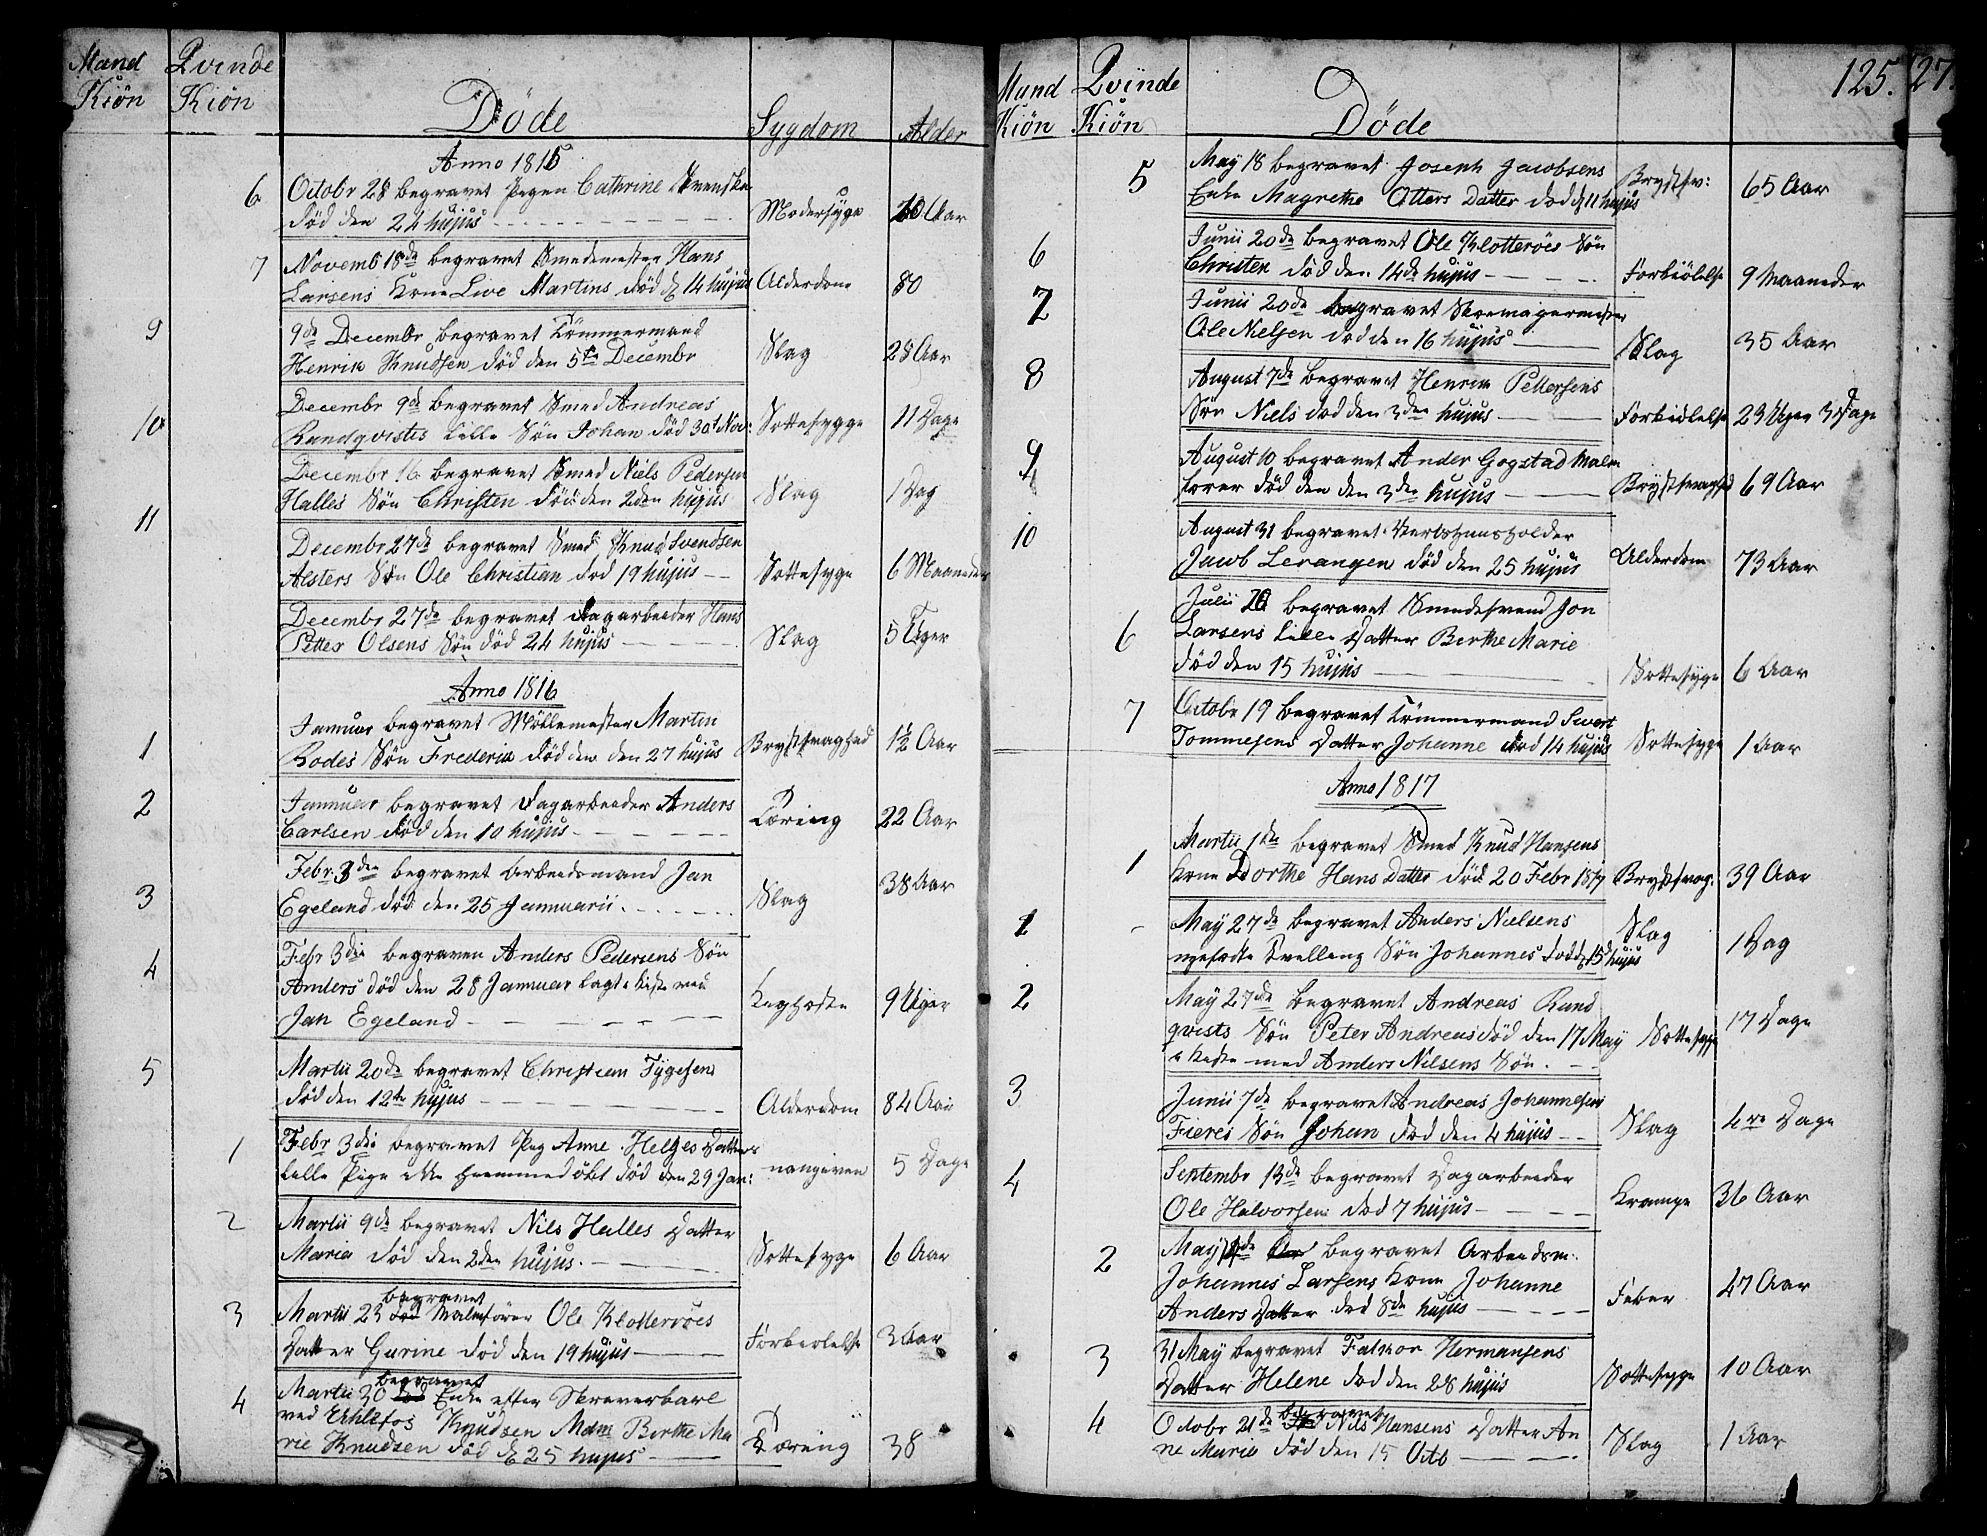 Mand Qvinde
Kiön Kiön Döde Sygdom Alder
Anno 1815
6 Octobr 28 begravet Pigen Cathrine Svenske
död den 24 hujus Modersyge Aar
7 Novemb 18de begravet Smedemester Hans
Larsens Kone Live Martins död d 14 hujus Alderdom 80
9 9de Decembr begravet Tömmermand
Henrik Knudsen död den 5te Decembr Slag 28 Aar
10 Decembr 9de begravet Smed Andreas
Rundqvistes lille Sön Johan död 30t Nov: Sottesygge 11 Dage
Decembr 16 begravet Smed Niels Pedersen
Halles Sön Christen död den 2den hujus Slag 1 Dag
11 Decembr 27de begravet Smed Knud Svendsen
Alsters Sön Ole Christian död 19 hujus Sottesyge 6 Maaneder
Decembr 27de begravet Dagarbeider Hans
Petter Olsens Sön död 24 hujus Slag 5 Uger
Anno 1816
1 Januar begravet Möllemester Martin
Rodes Sön Frederik död den den 27 hujus Brystsvaghed 1½ Aar
2 Januar begravet Dagarbeider Anders
Carlsen död den 10 hujus Tæring 22 Aar
3 Febr. 3die begravet Arbeidsmand Jan
Egeland död den 25 Januarii Slag 38 Aar
4 Febr 3die begraven Anders Pedersens Sön
Anders död den 28 Januar lagt i Kiste med
Jan Egeland Kighoste 9 Uger
5 Martii 20de begravet Christian Tygesen
död den 12te hujus Alderdom 84 Aar
1 Febr 3die begravet Pig Anne Helges Datters
lille Pige ikke hiemmedöbt död den 29 Jan: 5 Dage
2 Martii 9de begravet Nils Halles Datter
Maria död den 2den hujus. Sottesyge 6 Aar
3 begravet
Martii 23 död Malmförer Ole Klotteröes
Datter Gurine död den 19 hujus Forkiölelse 3 Aar
4 begravet
Martii 30 död Enke efter Skriverkarl
ved Ehlefos Knudsen Mdm Berthe Ma
rie Knudsen död d 25 hujus Tæring 38
125. 27.
Mand Qvinde
Kiön Kiön Döde
5 May 18 begravet Joseph Jacobsens
Enke Magrethe Otters Datter död d 11 hujus Brystsv: 65 Aar
6 Junii 20de begravet Ole Klotteröes Sön
Christen död den 14de hujus Forkiölelse 9 Maaneder
7 Junii 20de begravet Skoemagermester
Ole Nielsen död den 16 hujus Slag 35 Aar
8 August 7de begravet Henrik Pettersens
Sön Niels död den 3den hujus Forkiölelse 23 Uger 3 Dage
9 August 10 begravet Ander Gogstad Malm
förer död den den 3den hujus Brystsvaghed 69 Aar
10 August 31 begravet Vertshuusholder
Jacob Levangen död den 25 hujus Alderdom 73 Aar
6 Julii begravet Smedesvend Jon
Larsens lille Datter Berthe Marie
död den 15 hujus Sottesyge 6 Aar
7 Octobr 19 begravet Tömmermand Siwert
Tommesens Datter Johanne död 14 hujus Sottesyge 1 Aar
Anno 1817
1 Martii 1de begravet Smed Knud Hansens
Kone Dorthe Hans Datter död 20 Febr 1817 Brystsvag. 39 Aar
1 May 27de begravet Anders Nielsens
nyefödte Tvelling Sön Johannes död d 15d hujus Slag 1 Dag
2 May 27de begravet Andreas Rund
qvists Sön Peter Andreas död den 17 May
i Kiste med Anders Nilsens Sön. Sottesyge 17 Dage
3 Junii 7de begravet Andreas Johannesen
Fieres Sön Johan död den 4 hujus Slag 4re Dage
4 Septembr 13de begravet Dagarbeider
Ole Halvorsen död 7 hujus Krampe 36 Aar
2 May begravet Arbeidsm.
Johannes Larsens Kone Johanne
Anders Datter död 8de hujus Feber 47 Aar
3 31 May begravet Faktor Hermansens
Datter Helene död den 28 hujus Sottesyge 10 Aar
4 begravet
Octobr 21de Nils Hansens Datter An
ne Marie död den 15 Octb Slag 1 Aar